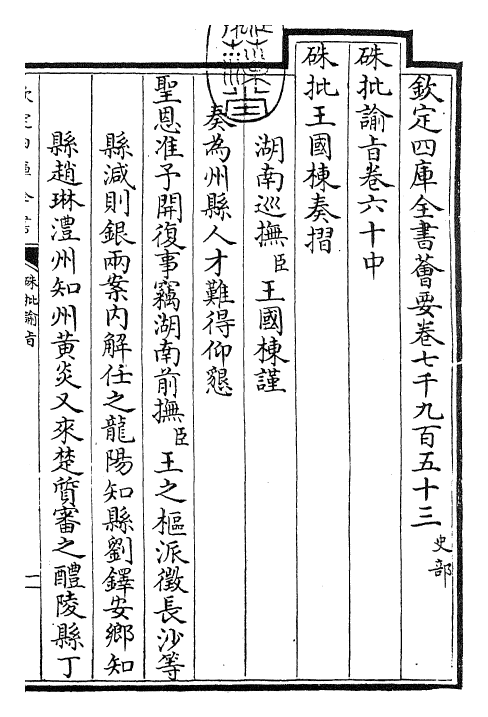 欽定四庫全書薈要卷七千九百五十三 史部
硃批諭旨卷六十中
硃批王國棟奏摺
湖南巡撫臣王國棟謹
奏為州縣人才難得仰懇
聖恩准予開復事竊湖南前撫臣王之樞派徵長沙等
縣減則銀兩案內解任之龍陽知縣劉鐸安鄉知
縣趙琳澧州知州黃炎又來楚質審之醴陵縣丁
硃批諭旨
一